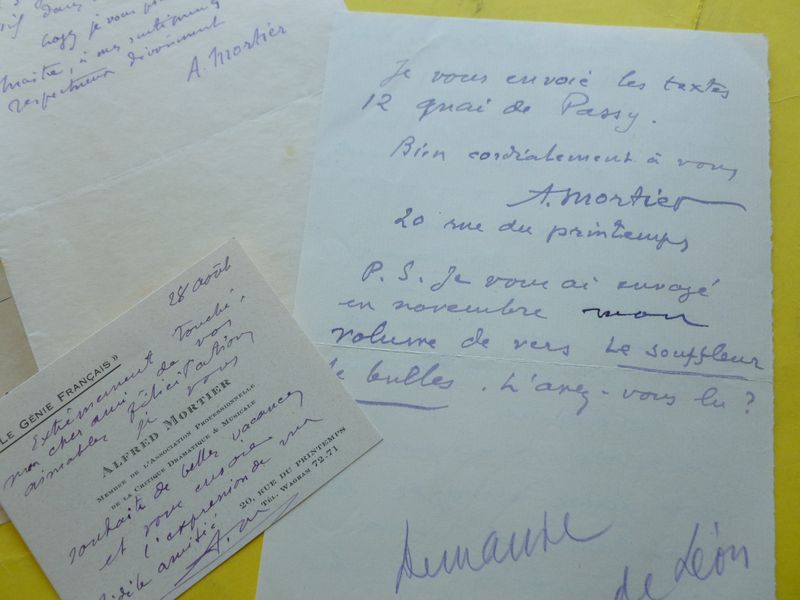 je vous
maître, à mes sentiments
respectueux
A. Mortier
Je vous envoie les textes
12 quai de Passy.
Bien cordialement à vous
A. Mortier
20 rue du printemps
P.S. Je vous ai envoyé
en novembre mon
volume de vers Le souffleur
de bulles. L'avez-vous lu ?
Demande
de Léon
28 août
LE GÉNIE FRANÇAIS»
Extrêmement touché,
mon cher ami, de vos
aimables félicitations
je vous
ALFRED MORTIER
MEMBRE DE L'ASSOCIATION PROFESSIONNELLE
DE LA CRITIQUE DRAMATIQUE & MUSICALE
souhaite de belles vacances
20, RUE DU PRINTEMPS
TÉL. WAGRAM 72-71
et vous envoie
l'expression de ma
fidèle amitié
A. M